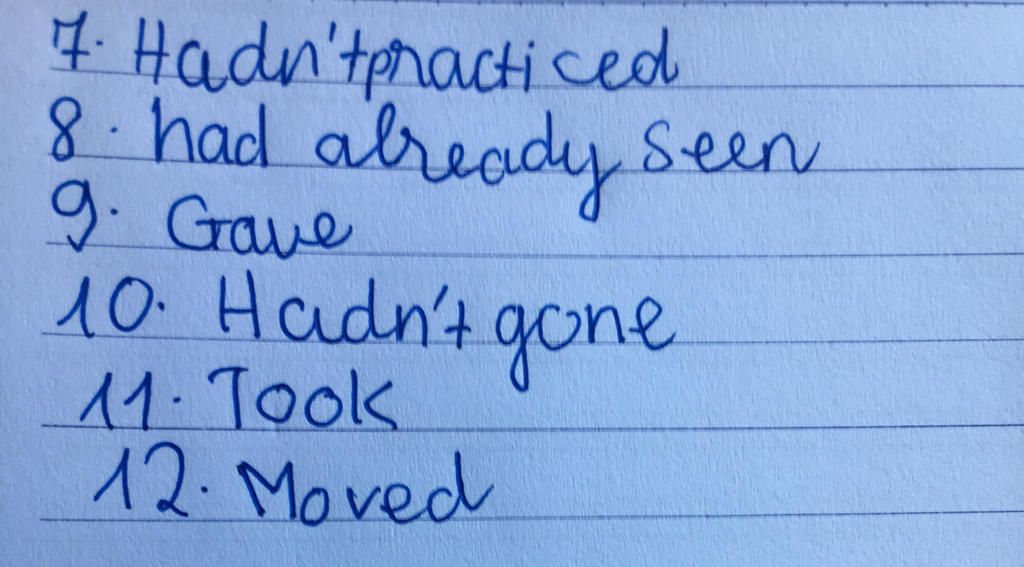 7. Hadn't practiced
8. had already seen
9. Gave
10. Hadn't gone
11. Took
12. Moved